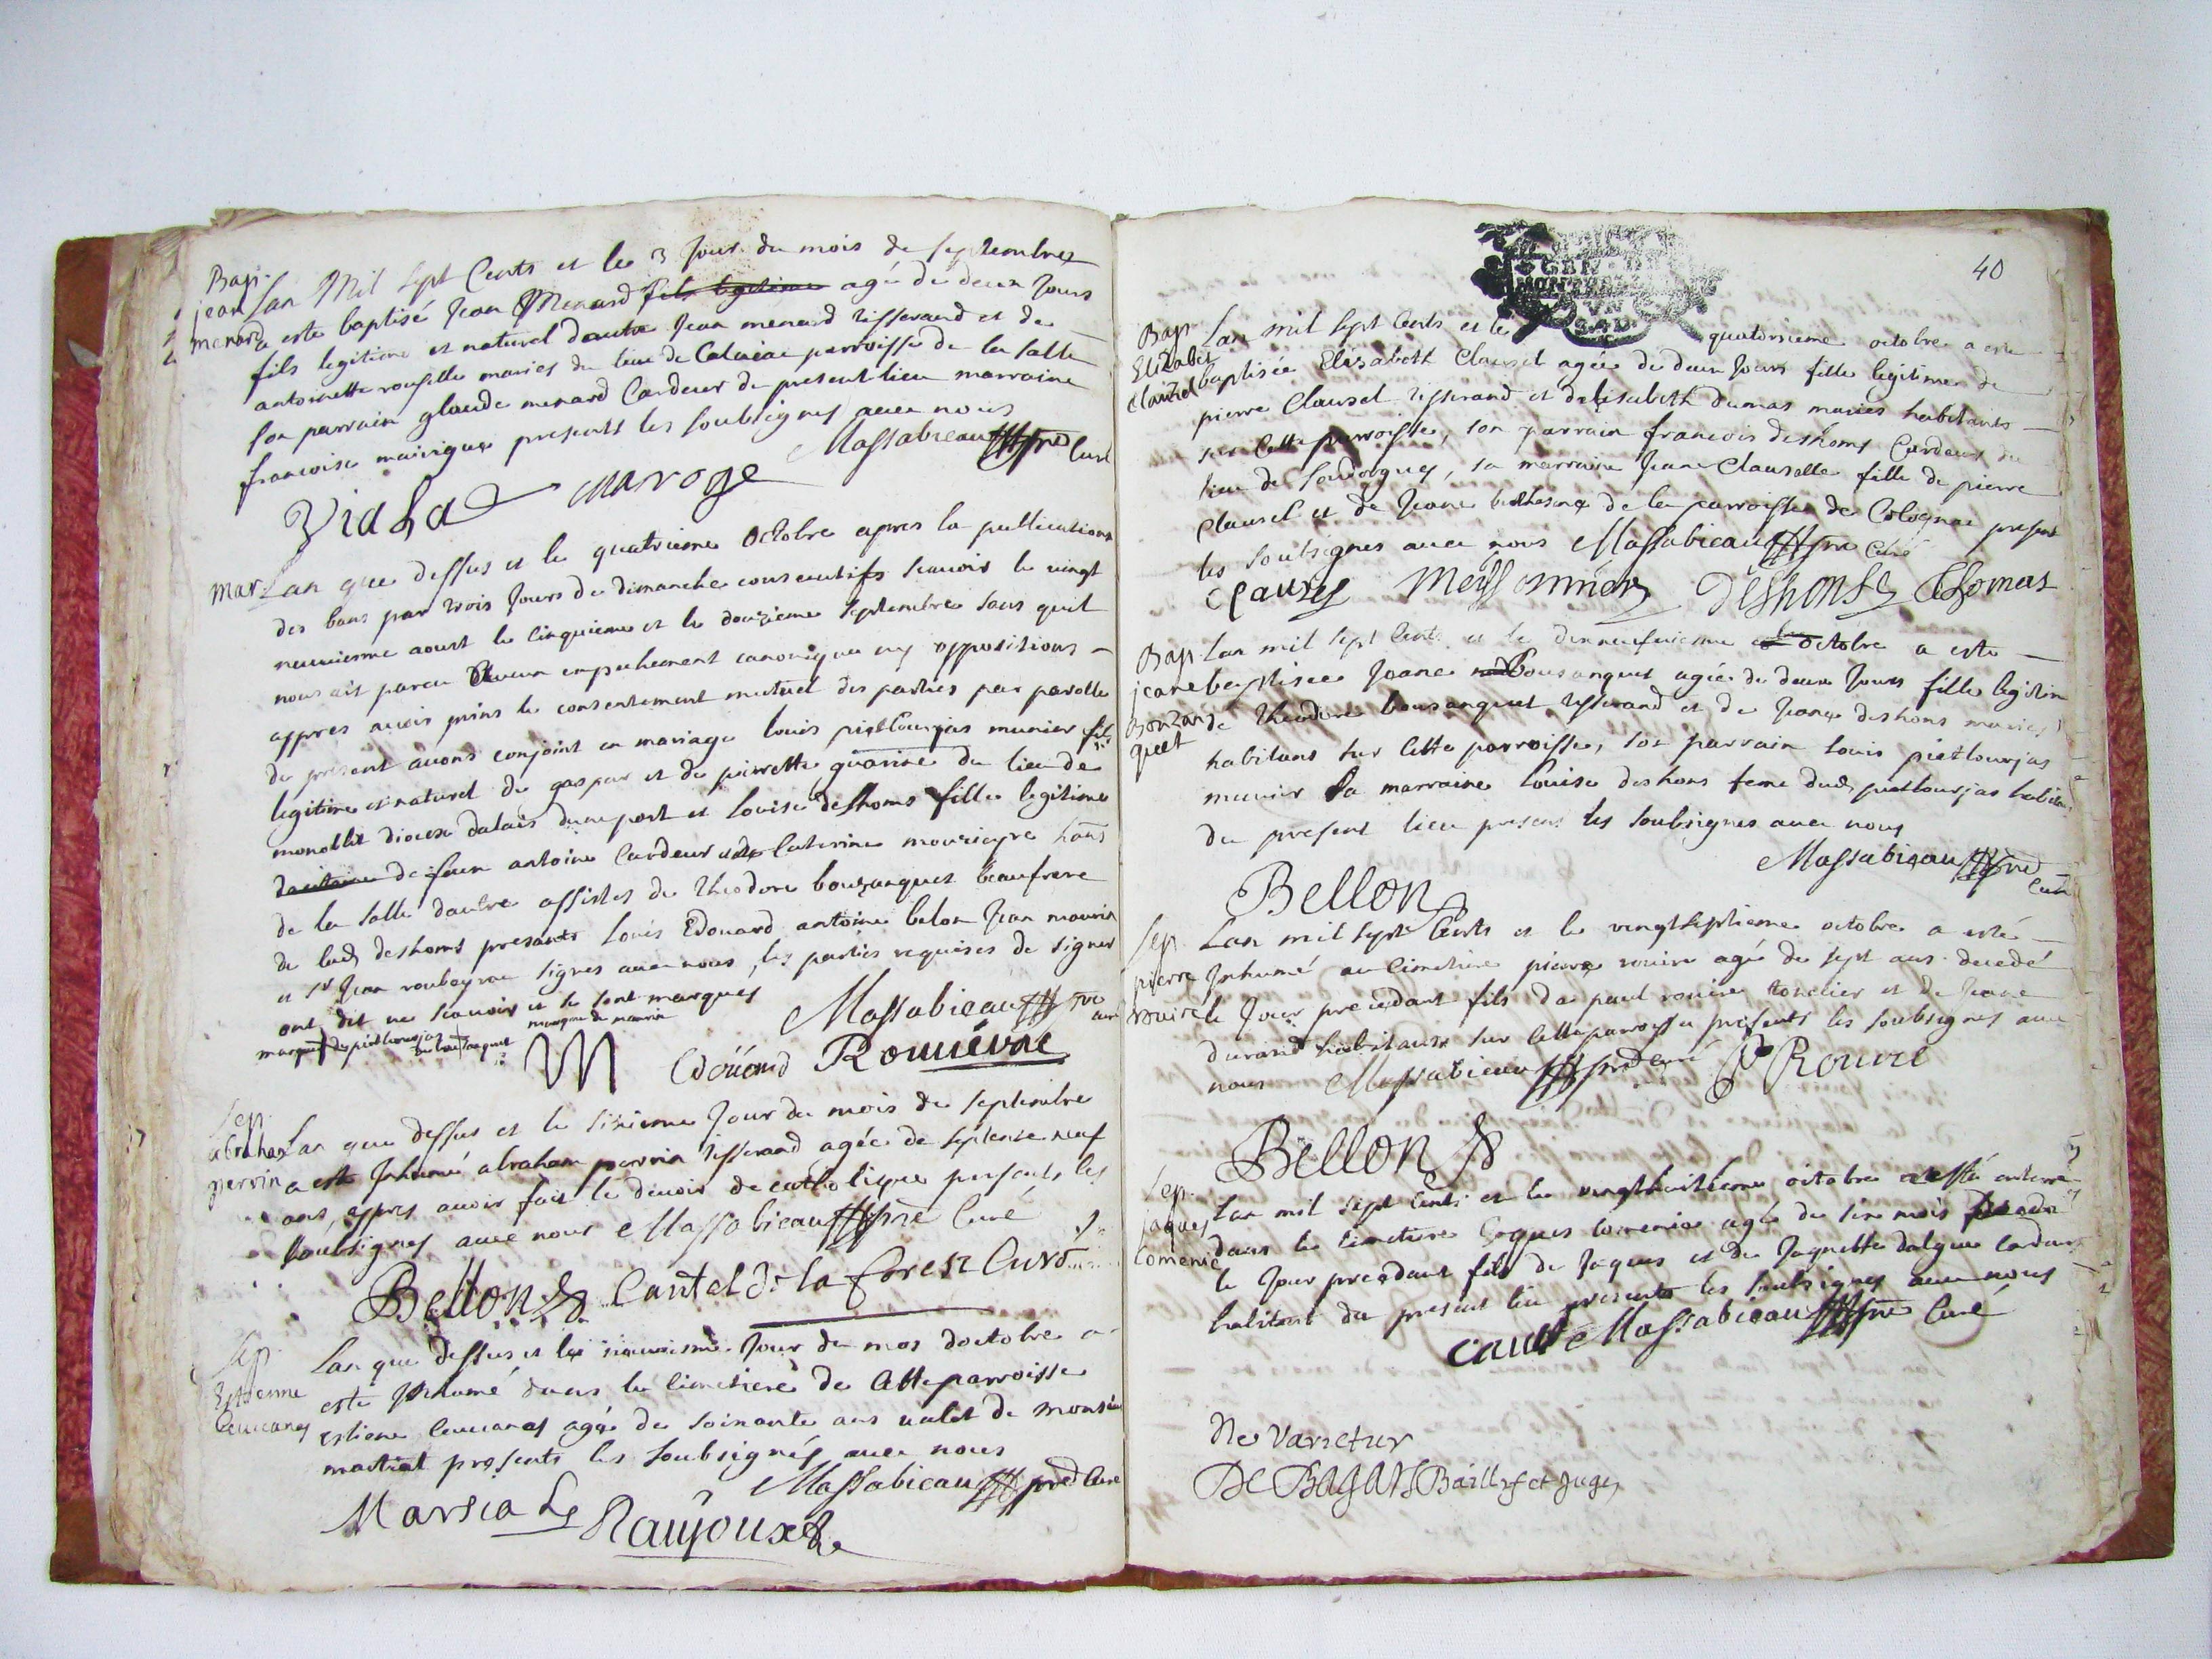 Bap.
jean
menard
Lan Mil Sept Cents et le 3 Jour du mois de septembre
a este baptisé Jean Menard fils legitime agé de deux Jours
fils legitime et naturel dautre Jean menard tisserand et de
antoinette rouselle maries du lieu de Calviac parroisse de la salle
son parrain glaude menard Cardeur du present lieu marraine
francoise presents les soubsignes avec nous
Massabieau pre Curé
Viala maroge
Mar. Lan que dessus et le quatrieme Octobre apres la publication
des bans par trois Jours de dimanche consecutifs scavoir le vingt
neuviesme aoust le cinquieme et le douzieme septembre sans quil
nous ait paru aucun empechement canonique ny oppositions
appres avoir prins le consentement mutuel des parties par parolle
de present avons conjoint en mariage louis pietlourjas munier fils
legitime et naturel de gaspar et de pierrette guarine du lieu de
monoblet diocese dalais dune part et louise deshoms fille legitime
de feu antoine Cardeur et de Caterine hans
de la salle dautre assistes de theodore bouzanquet beaufrere
de lad deshoms presants louis Edouard antoine belon Jean maurin
et Sr Jean roubeyrou signes avec nous, les parties requises de signer
ont dit ne scavoir et se sont marques
marque de pietlourjas
marque de maurin
Massabieau pre curé
M Edouard
Sep.
abraham
perrin
Lan que dessus et le sixieme Jour du mois de septembre
a este Inhumé abraham perrin tisserand agée de septente neuf
ans, appres avoir fait le devoir de catholique presents les
soubsignes avec nous Massabieau pre Curé
Bellon Cantel de la forest Curé
Sep.
Estienne
Lan que dessus et le Jour du mos doctobre a
este Inhumé dans le cimetiere de Cette parroisse
estiene agée de soixante ans valet de monsieur
martial presents les soubsignés avec nous
Massabieau pre Curé
Marsial Raujoux
GEN. DE
MONTPE
VN
40
Bap.
Elizabet
Clauzel
Lan mil sept Cents et le quatorsieme octobre a este
baptisée Elisabeth Clausel agée de deux Jours fille legitime de
pierre Clausel tisserand et delisabeth dumas maries habitants
sur Cette parroisse, son parrain francois deshoms Cardeur du
lieu de Soudorgues, sa marraine Jeane Clauselle fille de pierre
Clausel et de Jeane de la parroisse de Colognac presents
les soubsignes avec nous Massabieau pre Curé
Meyssonnier Deshons Thomas
Bap.
jeane
Bouzan
quet
Lan mil sept Cents et le dixneufviesme octobre a este
baptisee Jeane Bousanquet agée de deux Jours fille legitime
de theodore bousanquet tisserand et de Jeane deshoms maries
habitans sur Cette parroisse, son parrain louis pietlourjas
munier sa marraine louise deshons feme dud pietlourjas habitans
du present lieu presens les soubsignes avec nous
Massabieau pre Curé
Bellon
Sep.
pierre
Rouire
Lan mil sept Cents et le vingtseptieme octobre a esté
Inhumé au Cimetiere pierre rouire agé de sept ans decedé
le Jour precedant fils de paul rouire et de Jeane
durand habitans sur Cette parroisse presents les soubsignes avec
nous Massabieau pre Curé P Rouire
Bellon
Sep.
jaques
Comenie
Lan mil sept Cents et le vingthuitieme octobre a esté enterré
dans le cimetiere Jaques Comenie agé de six mois
le Jour precedant fils de Jaques et de Jaquette
habitant du present lieu presents les soubsignes avec nous
Massabieau pre Curé
Ne Varietur
De Bagars Baillif et Juge